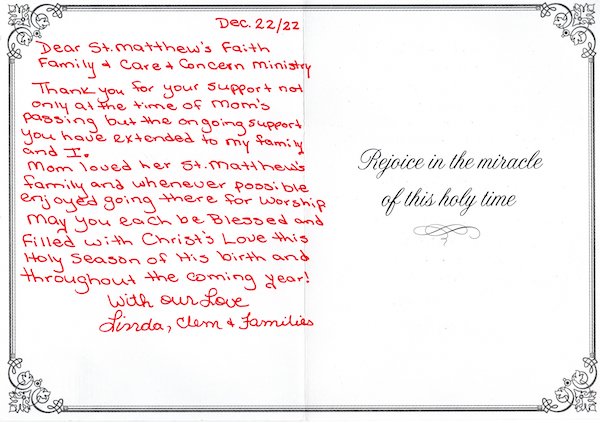 Dec. 22/22
Dear St. Matthew's Faith
Family & Care & Concern Ministry
Thank you for your support not
only at the time of Mom's
passing but the ongoing support
you have extended to my family
and I.
Mom loved her St. Matthew's
family and whenever possible
enjoyed going there for worship
May you each be Blessed and
Filled with Christ's Love this
Holy Season of His birth and
throughout the coming year!
With our Love
Linda, Clem & Families
Rejoice in the miracle
of this holy time